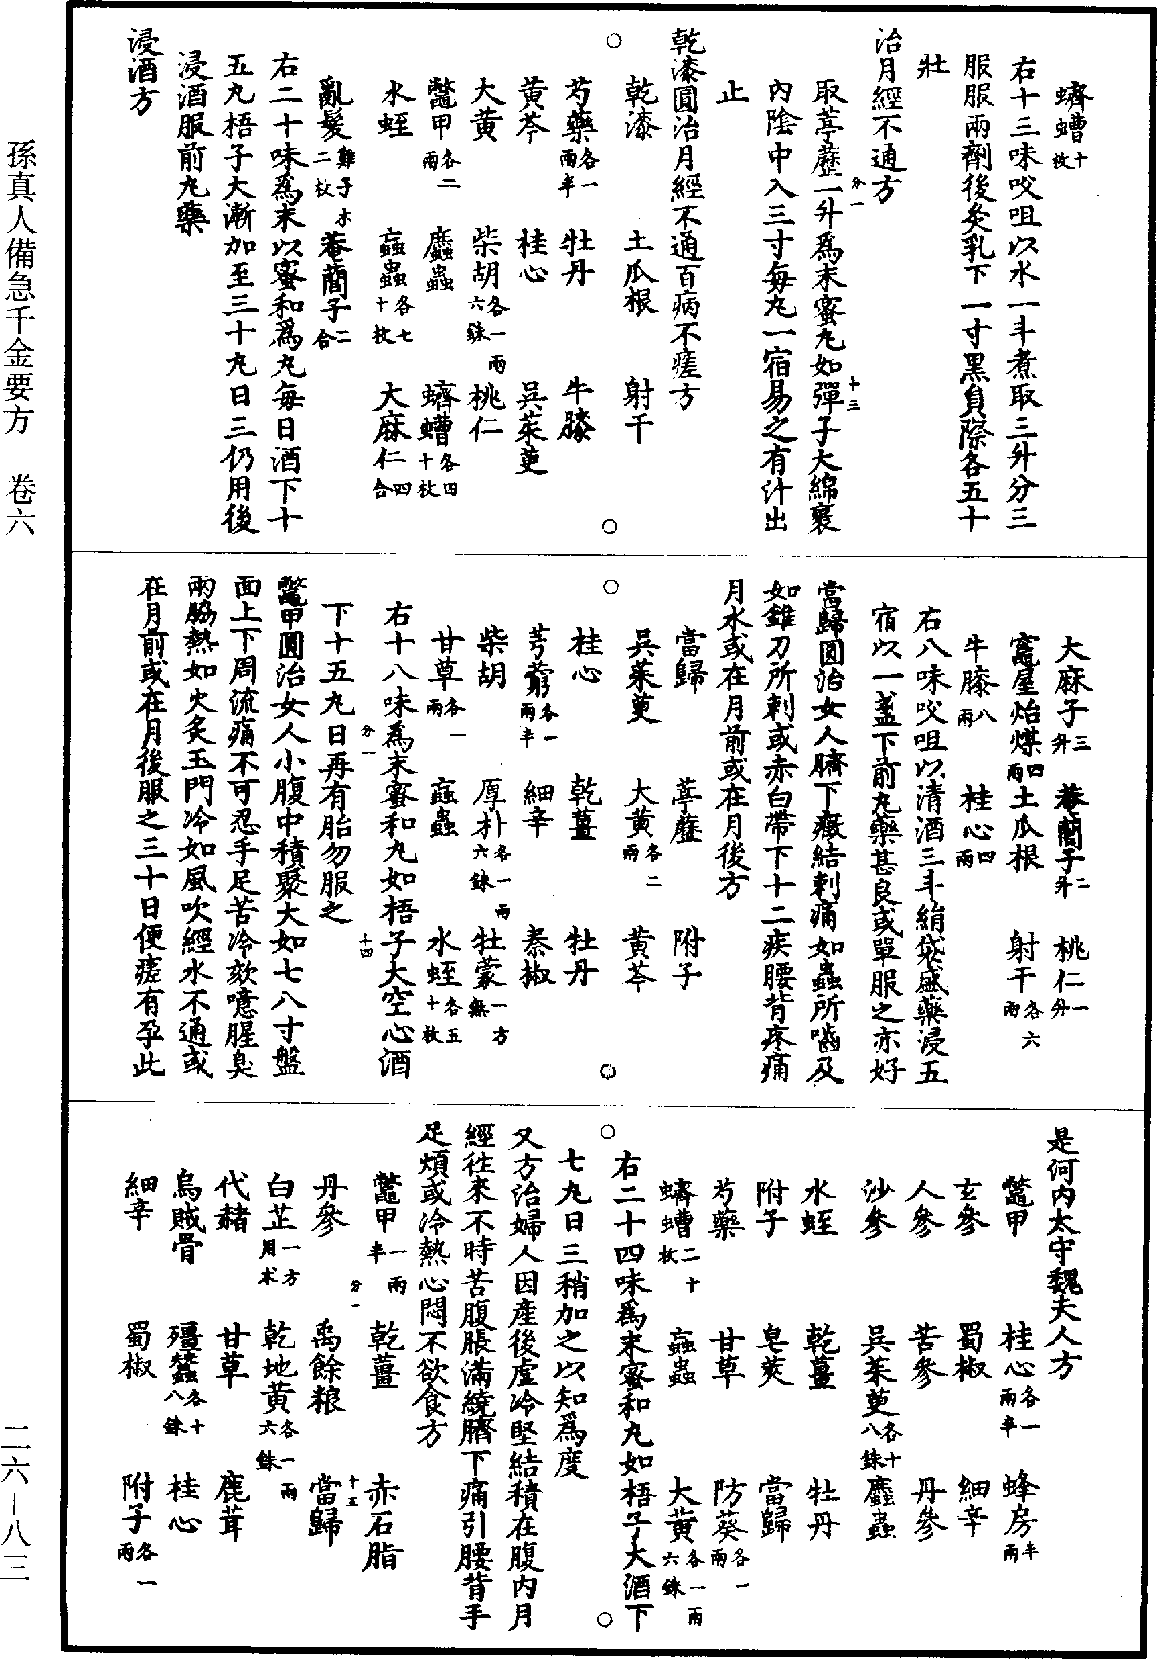 蠐螬十枚
右十三味㕮咀以水一斗煮取三升分三
服服兩劑後灸乳下一寸黑貟際各五十
壯
治月經不通方
取葶藶一升爲末蜜丸如彈子大綿裹
內陰中入三寸每丸一宿易之有汁出
止
乾漆圓治月經不通百病不瘥方
乾漆 土瓜根 射干
芍藥各一兩半 牡丹 牛膝
黃芩 桂心 吳茱萸
大黃 柴胡各一兩六銖 桃仁
鼈甲各二兩 䗪蟲 蠐螬各四十枚
水蛭 蝱蟲各七十枚 大麻仁四合
亂髮雞子大二枚 菴䕡子二合
右二十味爲末以蜜和爲丸每日酒下十
五丸梧子大漸加至三十丸日三仍用後
浸酒服前丸藥
浸酒方
大麻子三升 菴䕡子二升 桃仁一升
竈屋炲煤四兩 土瓜根 射干各六兩
牛膝八兩 桂心四兩
右八味㕮咀以清酒三斗絹袋盛藥浸五
宿以一盞下前丸藥甚良或單服之亦好
當歸圓治女人臍下癥結刺痛如蟲所嚙及
如錐刀所刺或赤白帶下十二疾腰背疼痛
月水或在月前或在月後方
當歸 葶藶 附子
吳茱萸 大黃各二兩 黃芩
桂心 乾薑 牡丹
芎藭各一兩半 細辛 秦椒
柴胡 厚朴各一兩六銖 牡蒙一方無
甘草各一兩 蝱蟲 水蛭各五十枚
右十八味爲末蜜和丸如梧子大空心酒
下十五丸日再有胎勿服之
鼈甲圓治女人小腹中積聚大如七八寸盤
面上下周流痛不可忍手足苦冷欬噫腥臭
兩脇熱如火炙玉門冷如風吹經水不通或
在月前或在月後服之三十日便瘥有孕此
是何內太守魏夫人方
鼈甲 桂心各一兩半 蜂房半兩
玄參 蜀椒 細辛
人參 苦參 丹參
沙參 吳茱萸各十八銖 䗪蟲
水蛭 乾薑 牡丹
附子 皂莢 當歸
芍藥 甘草 防葵各一兩
蠐螬二十枚 蝱蟲 大黃各一兩六銖
右二十四味爲末蜜和丸如梧子大酒下
七丸日三稍加之以知爲度
又方治婦人因產後虛冷堅結積在腹內月
經往來不時苦腹脹滿繞臍下痛引腰背手
足煩或冷熱心悶不欲食方
鼈甲一兩半 乾薑 赤石脂
丹參 禹餘粮 當歸
白芷一方用朮 乾地黃各一兩六銖
代赭 甘草 鹿茸
烏賊骨 殭蠶各十八銖 桂心
細辛 蜀椒 附子各一兩
孫真人備急千金要方 卷六
二六—八三